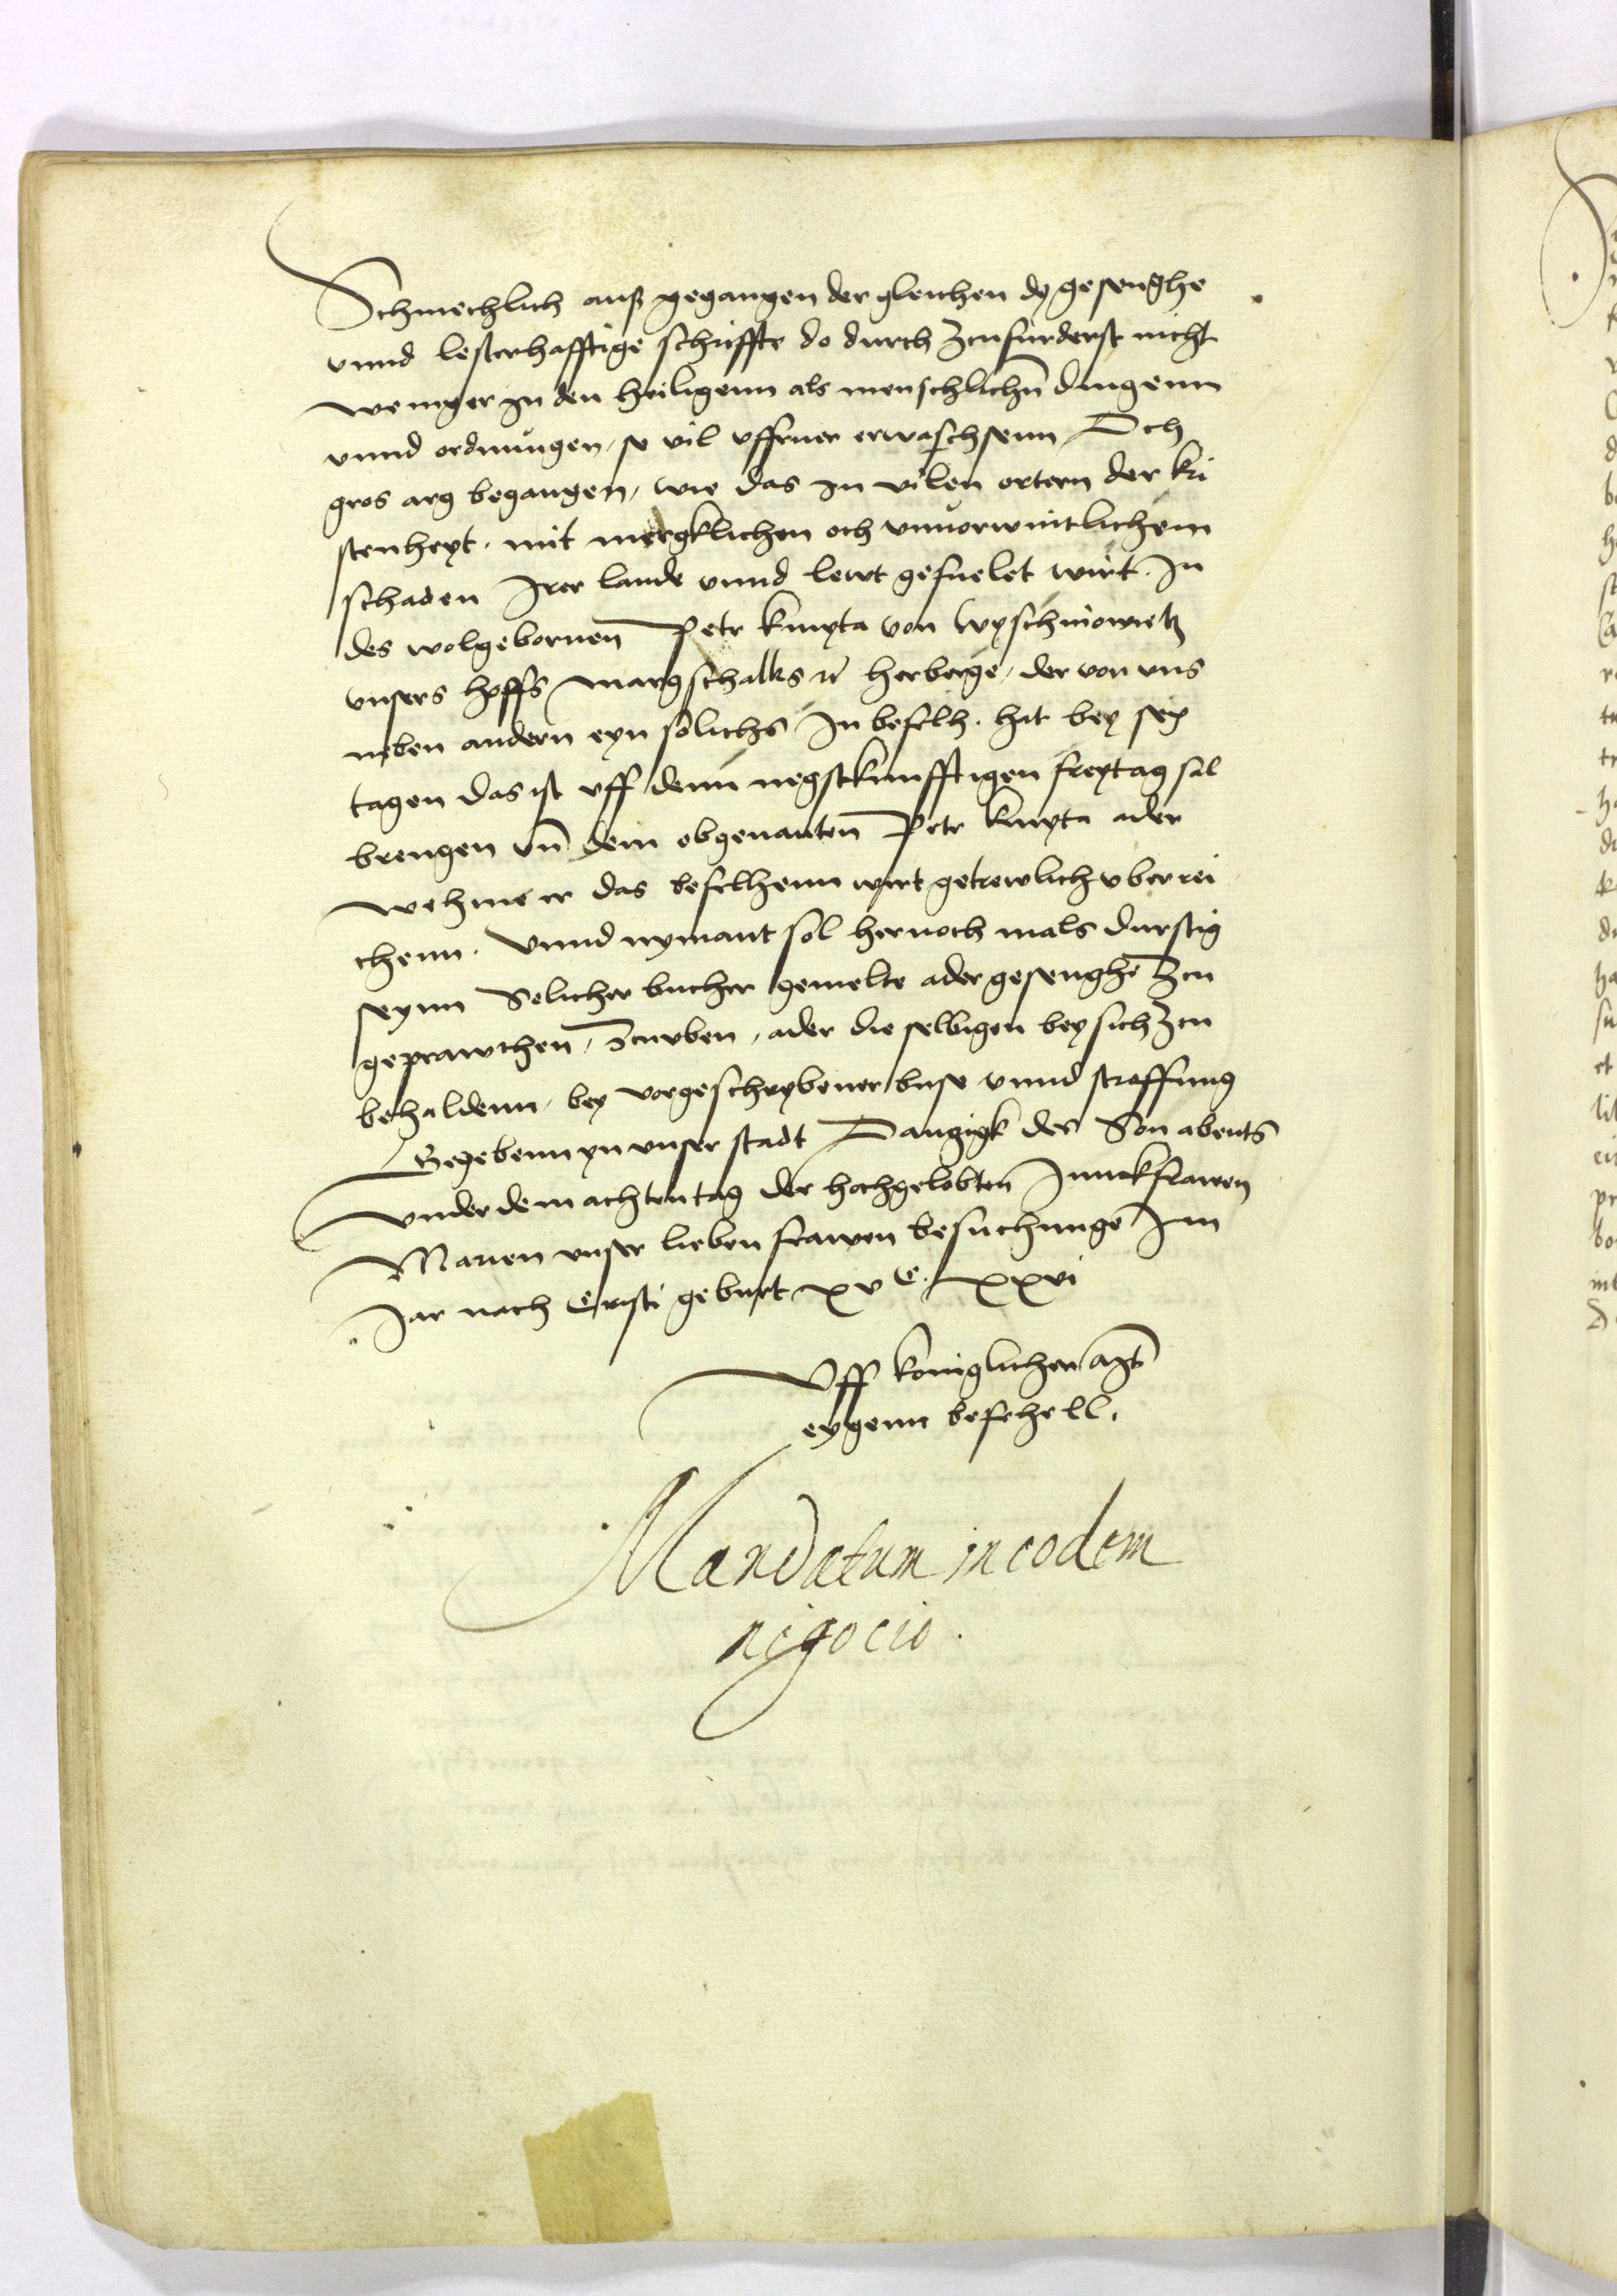 Schmechlich auß gegangen der gleichen dy gesenghe
vnnd lesterhafftige schriffte do durch Zcufurderst nicht
weniger in den heiligenn als menschlichn̄ dingenn
vnnd ordnungen, so vil vffruer erwachsenn Och
gros arg begangen, wie das in vilen ortern der kri
stenheyt. mit mergklichen och vnuorwintlichem
schaden Irer lande vnnd lewt gefuelet wirt. In
des wolgebornen Petr kmyta von Wyschniowietz
vnsers hoffs margschalks herberge, der von vns
neben andern eyn solichs In befelh. hat bey sex
tagen das ist vff denn negstkunfftigen freytag sal
brengen vn̄ dem obgenanten Petr kmyta ader
wehme er das befelhenn wirt getrewlich vberrei
chenn. Vnnd nymant sol hernoch mals durstig
seynn Solicher bucher gemelte ader gesenghe Zcu
geprawchen, Zcuvben, ader die selbigen bey sich Zcu
behaldenn, bey vorgeschrybener buse vnnd straffung
Gegebenn yn vnser stadt Dangigk des Son abents
vnder dem achten tag der hochgelobten Junckfrawen
Marien vnser lieben frawen besuchunge Im
Jar nach Cristi geburt xv C. xxvi
Vff koniglicher
eygenn befehell.
Mandatum in eodem
negocio.